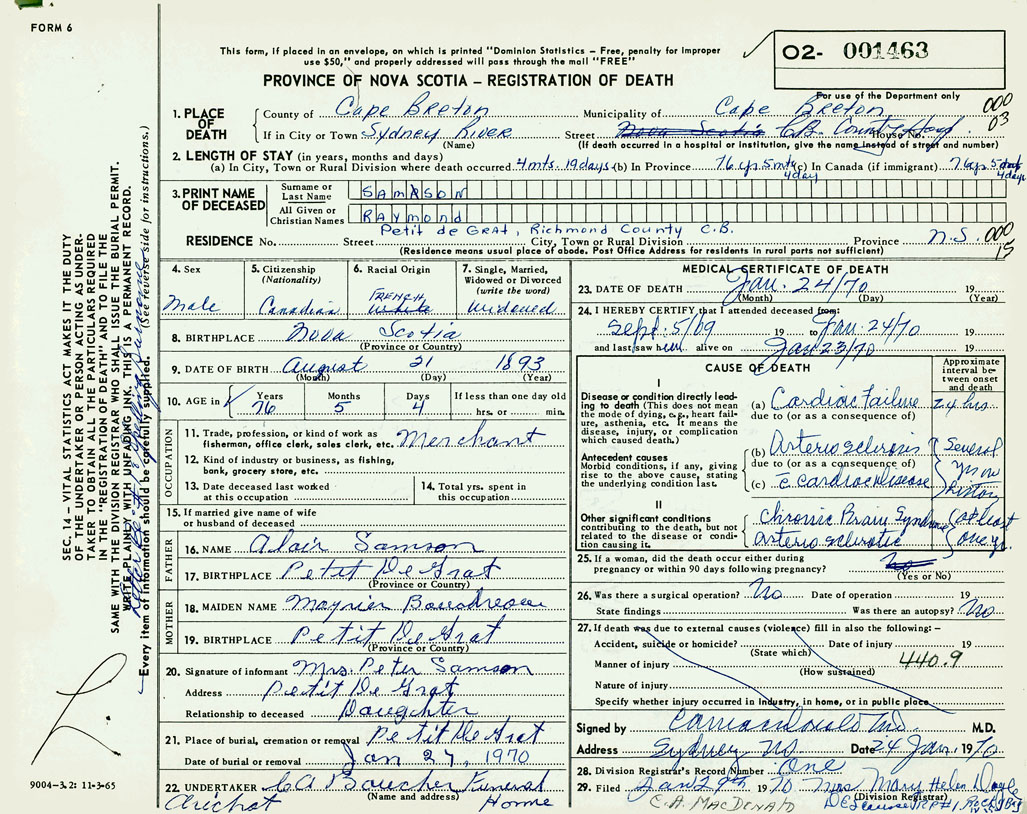 FORM 6
This form, if placed in an envelope, on which is printed "Dominion Statistics – Free, penalty for improper
use $50," and properly addressed will pass through the mail "FREE"
O2- 001463
PROVINCE OF NOVA SCOTIA – REGISTRATION OF DEATH
For use of the Department only
000
03
1. PLACE OF DEATH
County of Cape Breton Municipality of Cape Breton
If in City or Town Sydney River Street Nova Scotia C.B. County Hosp. House No.
(Name) (If death occurred in a hospital or institution, give the name instead of street and number)
2. LENGTH OF STAY (in years, months and days)
(a) In City, Town or Rural Division where death occurred 4 mts. 19 days (b) In Province 76 yrs 5 mts 4 day (c) In Canada (if immigrant) 76 yrs 5 mts 4 days
3. PRINT NAME OF DECEASED
Surname or Last Name SAMPSON
All Given or Christian Names RAymond
Petit de GRAT, Richmond County C.B.
RESIDENCE No. Street City, Town or Rural Division Province N.S. 000
15
(Residence means usual place of abode. Post Office Address for residents in rural parts not sufficient)
4. Sex
Male
5. Citizenship
(Nationality)
Canadian
6. Racial Origin
FRENCH
White
7. Single, Married, Widowed or Divorced
(write the word)
Widowed
8. BIRTHPLACE Nova Scotia
(Province or Country)
9. DATE OF BIRTH August 21 1893
(Month) (Day) (Year)
10. AGE in Years 76 Months 5 Days 4 If less than one day old
hrs. or min.
OCCUPATION
11. Trade, profession, or kind of work as
fisherman, office clerk, sales clerk, etc. Merchant
12. Kind of industry or business, as fishing,
bank, grocery store, etc.
13. Date deceased last worked
at this occupation
14. Total yrs. spent in
this occupation
15. If married give name of wife
or husband of deceased
FATHER
16. NAME Samson
17. BIRTHPLACE Petit De Grat
(Province or Country)
MOTHER
18. MAIDEN NAME
19. BIRTHPLACE Petit De Grat
(Province or Country)
20. Signature of informant Mrs. Peter Samson
Address Petit De Grat
Relationship to deceased Daughter
21. Place of burial, cremation or removal Petit De Grat
Date of burial or removal Jan 27, 1970
22. UNDERTAKER C A Boucher Funeral
(Name and address)
Arichat Home
MEDICAL CERTIFICATE OF DEATH
23. DATE OF DEATH Jan. 24/70 19
(Month) (Day) (Year)
24. I HEREBY CERTIFY that I attended deceased from:
Sept. 5/69 19 to Jan. 24/70 19
and last saw him alive on Jan 23/70 19
CAUSE OF DEATH
Approximate interval between onset and death
I
Disease or condition directly leading to death (This does not mean the mode of dying, e.g., heart failure, asthenia, etc. It means the disease, injury, or complication which caused death.)
(a) Cardiac Failure 24 hrs
due to (or as a consequence of)
Antecedent causes
Morbid conditions, if any, giving rise to the above cause, stating the underlying condition last.
(b) Arteriosclerosis Several
due to (or as a consequence of) yrs
(c) c cardiac disease history
II
Other significant conditions
contributing to the death, but not related to the disease or condition causing it.
Chronic Brain Syndrome (at least
Arteriosclerotic one yr.
25. If a woman, did the death occur either during
pregnancy or within 90 days following pregnancy?
(Yes or No)
26. Was there a surgical operation? No Date of operation 19
State findings Was there an autopsy? No
27. If death was due to external causes (violence) fill in also the following: –
Accident, suicide or homicide? Date of injury 19
(State which)
Manner of injury 440.9
(How sustained)
Nature of injury
Specify whether injury occurred in Industry, in home, or in public place
Signed by M.D.
Address Sydney NS Date 24 Jan 1970
28. Division Registrar's Record Number One
29. Filed Jan 29th 1970 Mrs Mary Helen Doyle
(Division Registrar)
C. A. MACDONALD
SEC. 14 – VITAL STATISTICS ACT MAKES IT THE DUTY
OF THE UNDERTAKER OR PERSON ACTING AS UNDER-
TAKER TO OBTAIN ALL THE PARTICULARS REQUIRED
IN THE "REGISTRATION OF DEATH" AND TO FILE THE
SAME WITH THE DIVISION REGISTRAR WHO SHALL ISSUE THE BURIAL PERMIT.
WRITE PLAINLY WITH UNFADING INK. THIS IS A PERMANENT RECORD.
Every item of information should be carefully supplied. (See reverse side for instructions.)
9004–3.2: 11-3-65